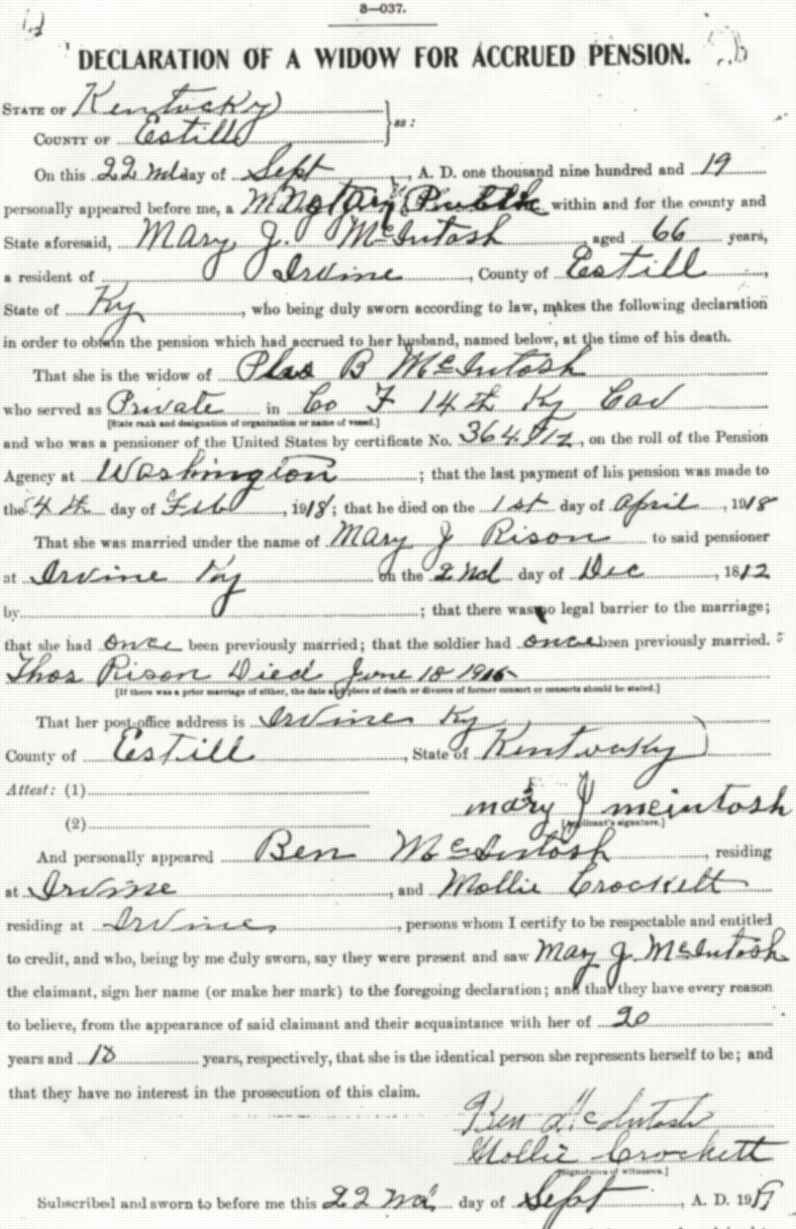 3—037.
DECLARATION OF A WIDOW FOR ACCRUED PENSION.
STATE OF Kentucky
COUNTY OF Estill } ss:
On this 22 nd day of Sept, A. D. one thousand nine hundred and 19
personally appeared before me, a Notary Public within and for the county and
State aforesaid, Mary J. McIntosh aged 66 years,
a resident of Irvine, County of Estill,
State of Ky, who being duly sworn according to law, makes the following declaration
in order to obtain the pension which had accrued to her husband, named below, at the time of his death.
That she is the widow of B McIntosh
who served as Private in Co F 14th Ky Cav
[State rank and designation of organization or name of vessel.]
and who was a pensioner of the United States by certificate No., on the roll of the Pension
Agency at Washington; that the last payment of his pension was made to
the 4th day of Feb, 1918; that he died on the 1st day of April, 1918
That she was married under the name of Mary J Rison to said pensioner
at Irvine Ky on the 2nd day of Dec, 1812
by; that there was no legal barrier to the marriage;
that she had once been previously married; that the soldier had once been previously married.
Thos Rison Died June 18
[If there was a prior marriage of either, the date and place of death or divorce of former consort or consorts should be stated.]
That her post-office address is Irvine Ky
County of Estill, State of Kentucky
Attest: (1)
(2)
mary J mcintosh
[Applicant's signature.]
And personally appeared Ben McIntosh, residing
at Irvine, and Mollie Crockett
residing at Irvine, persons whom I certify to be respectable and entitled
to credit, and who, being by me duly sworn, say they were present and saw Mary J. McIntosh
the claimant, sign her name (or make her mark) to the foregoing declaration; and that they have every reason
to believe, from the appearance of said claimant and their acquaintance with her of 20
years and 18 years, respectively, that she is the identical person she represents herself to be; and
that they have no interest in the prosecution of this claim.
Ben McIntosh
Mollie Crockett
[Signatures of witnesses.]
Subscribed and sworn to before me this 22 nd day of Sept, A. D. 19